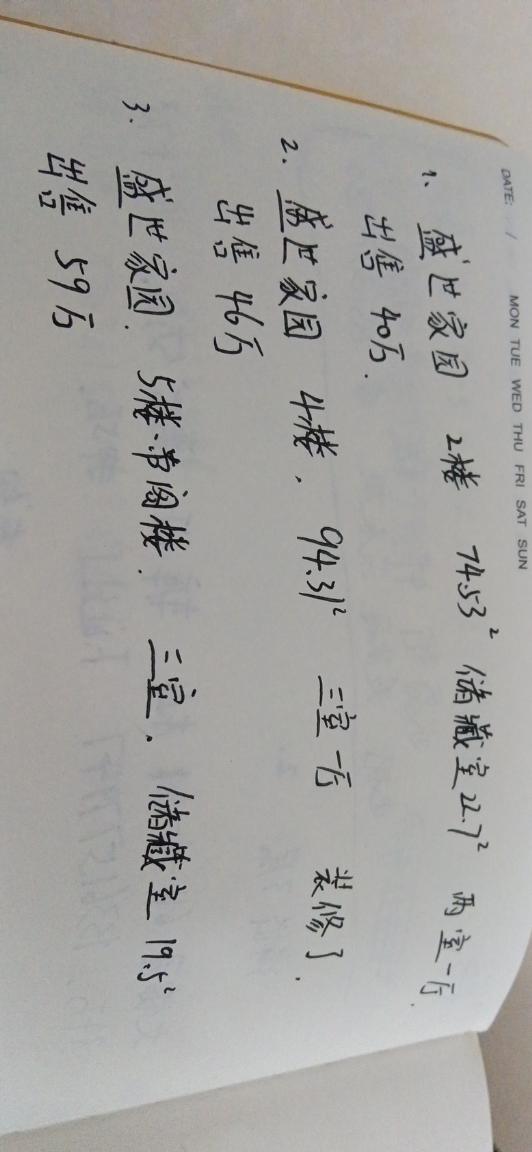 DATE: /
MON TUE WED THU FRI SAT SUN
1、盛世家园 2楼 74.53² 储藏室22.7² 两室一厅.
出售 40万.
2. 盛世家园 4楼. 94.31² 三室一厅 装修了.
出售 46万
3. 盛世家园. 5楼.带阁楼. 三室. 储藏室 19.5²
出售 59万